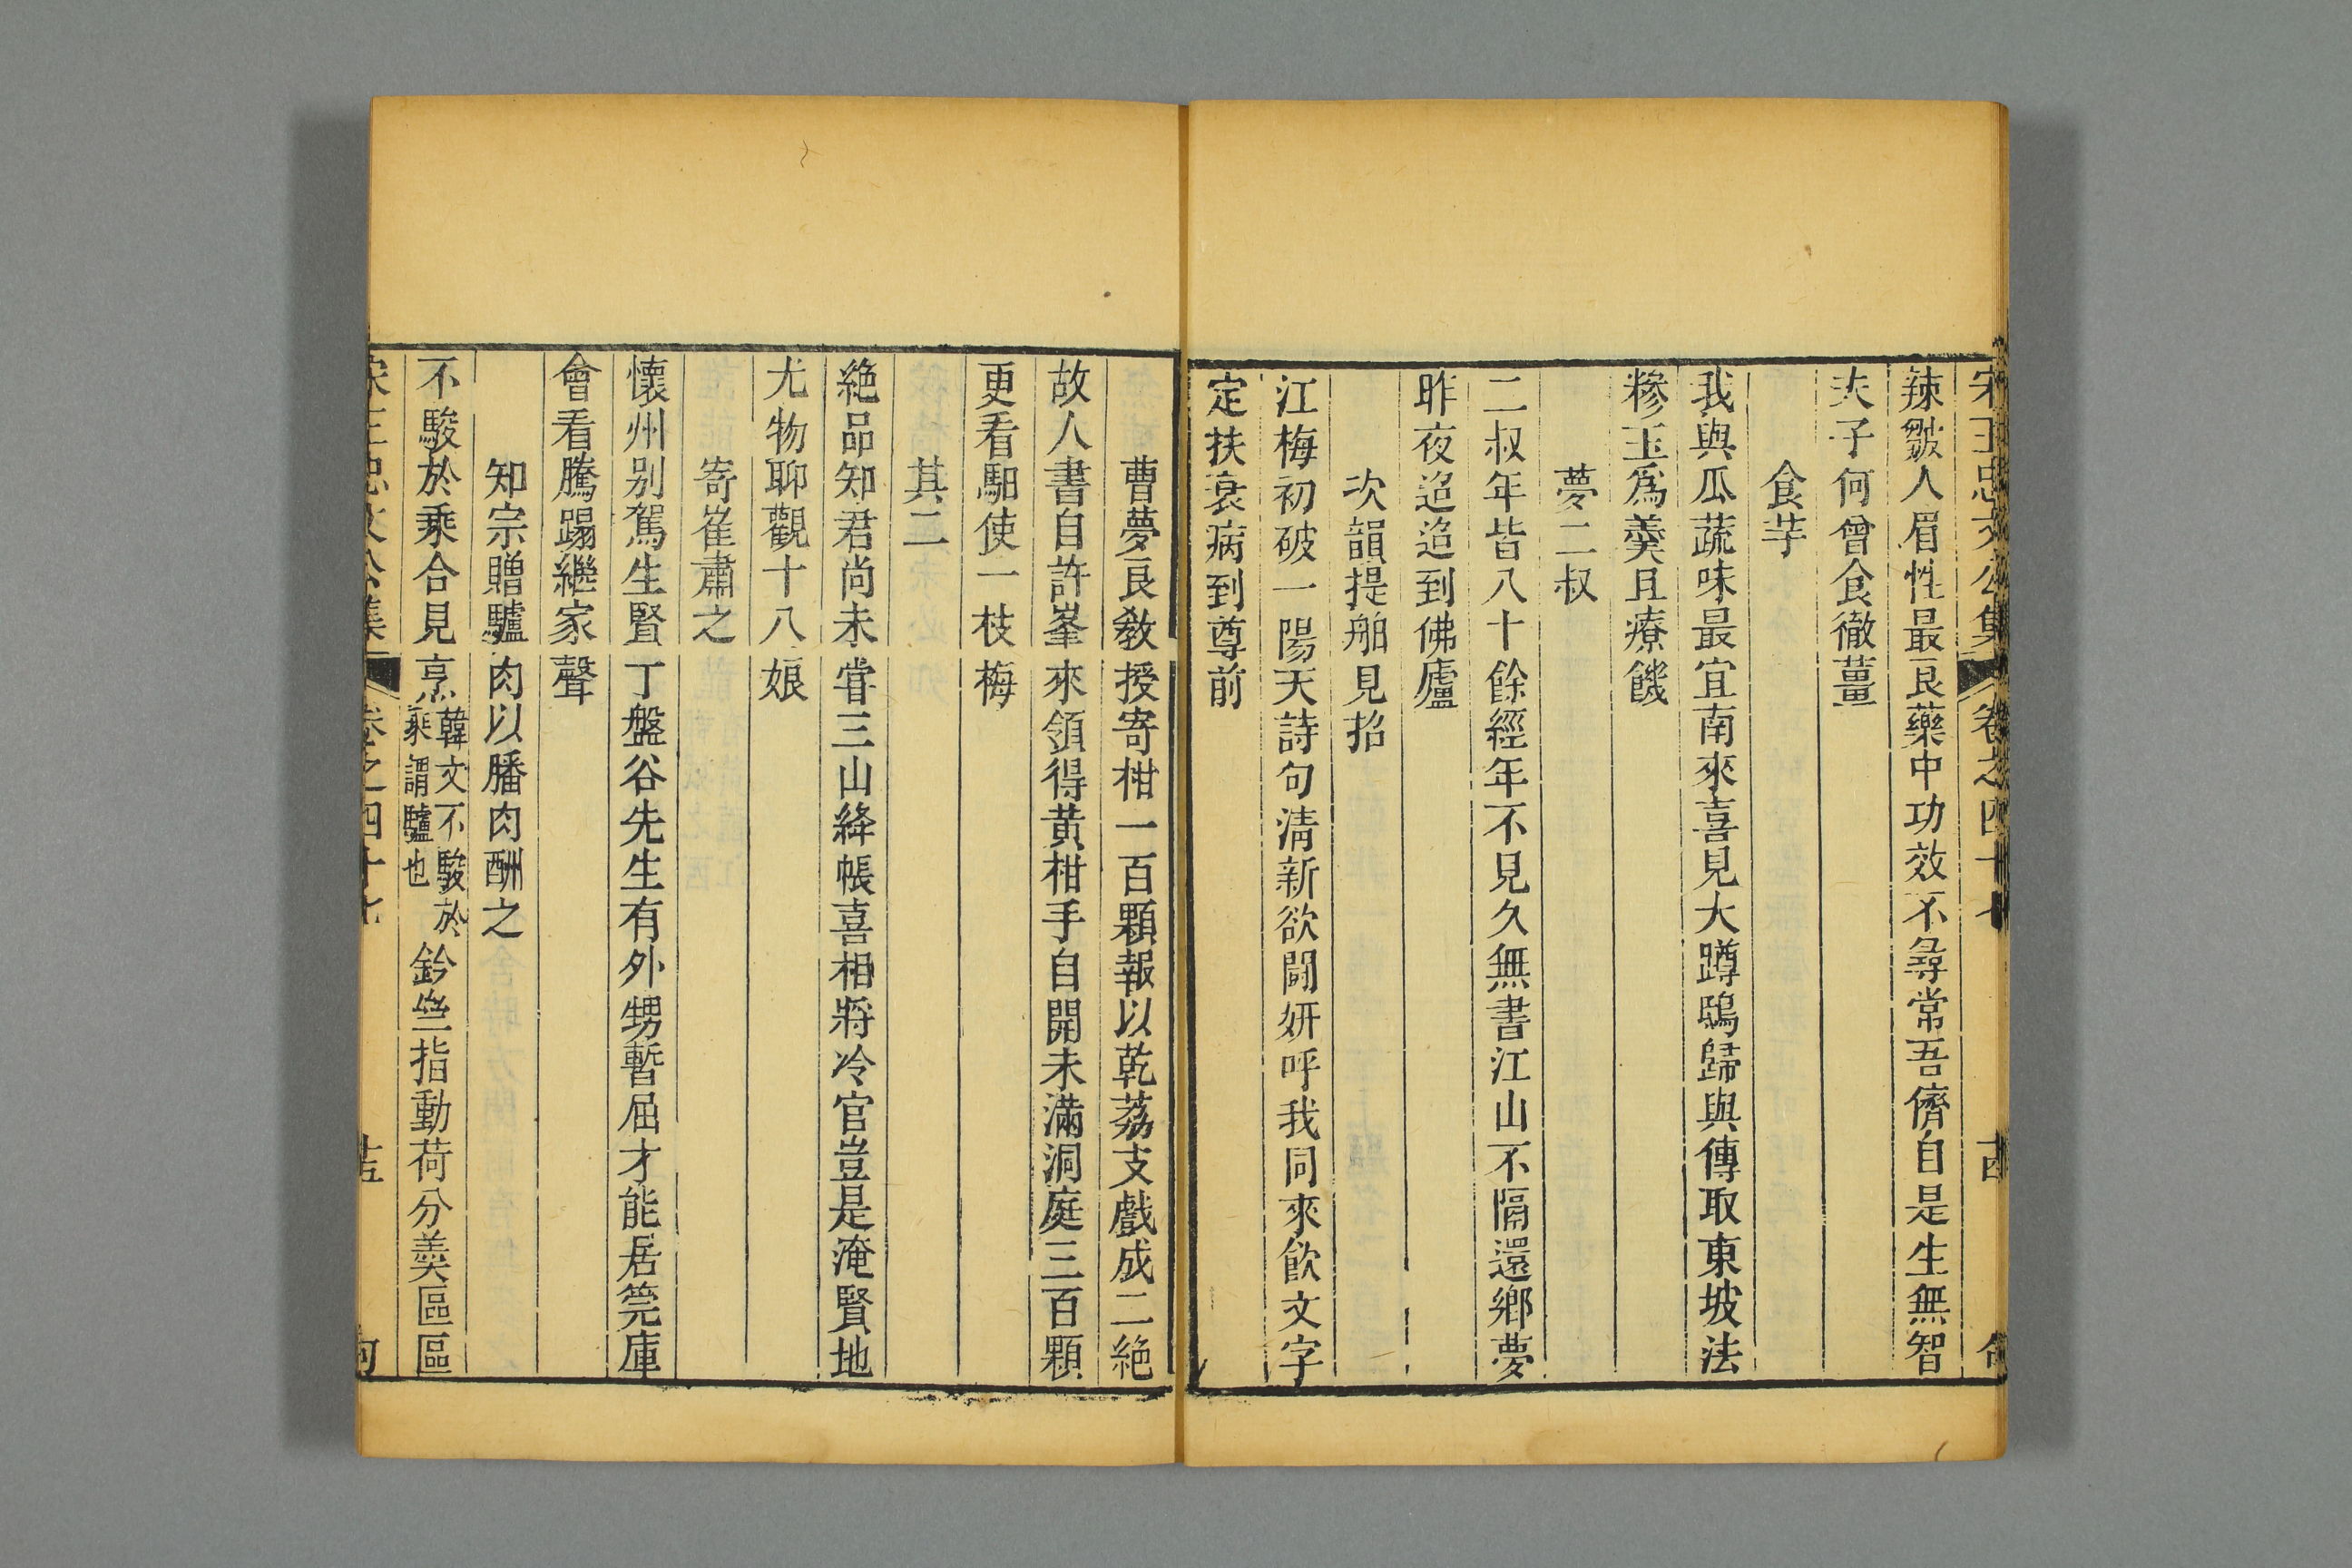 宋王忠文公集 卷之四十七
辣皺人眉性最良藥中功效不尋常吾儕自是生無智
夫子何曾食徹薑
食芋
我與瓜蔬味最宜南來喜見大蹲鴟歸與傳取東坡法
糝玉爲羹且療饑
夢二叔
二叔年皆八十餘經年不見久無書江山不隔還鄉夢
昨夜迢迢到佛廬
次韻提舶見招
江梅初破一陽天詩句淸新欲鬭妍呼我同來飲文字
定扶衰病到尊前
曹夢良敎授寄柑一百顆報以乾荔支戲成二絶
故人書自許峯來領得黃柑手自開未滿洞庭三百顆
更看馹使一枝梅
其二
絶品知君尚未嘗三山絳帳喜相將冷官豈是淹賢地
尤物聊觀十八娘
寄崔肅之
懷州别駕生賢丁盤谷先生有外甥暫屈才能居筦庫
會看騰踢繼家聲
知宗贈驢肉以膰肉酬之
不駿於乘合見烹韓文不駿於乘謂驢也鈐𨊻指動荷分羹區區
宋王忠文公集 卷之四十七